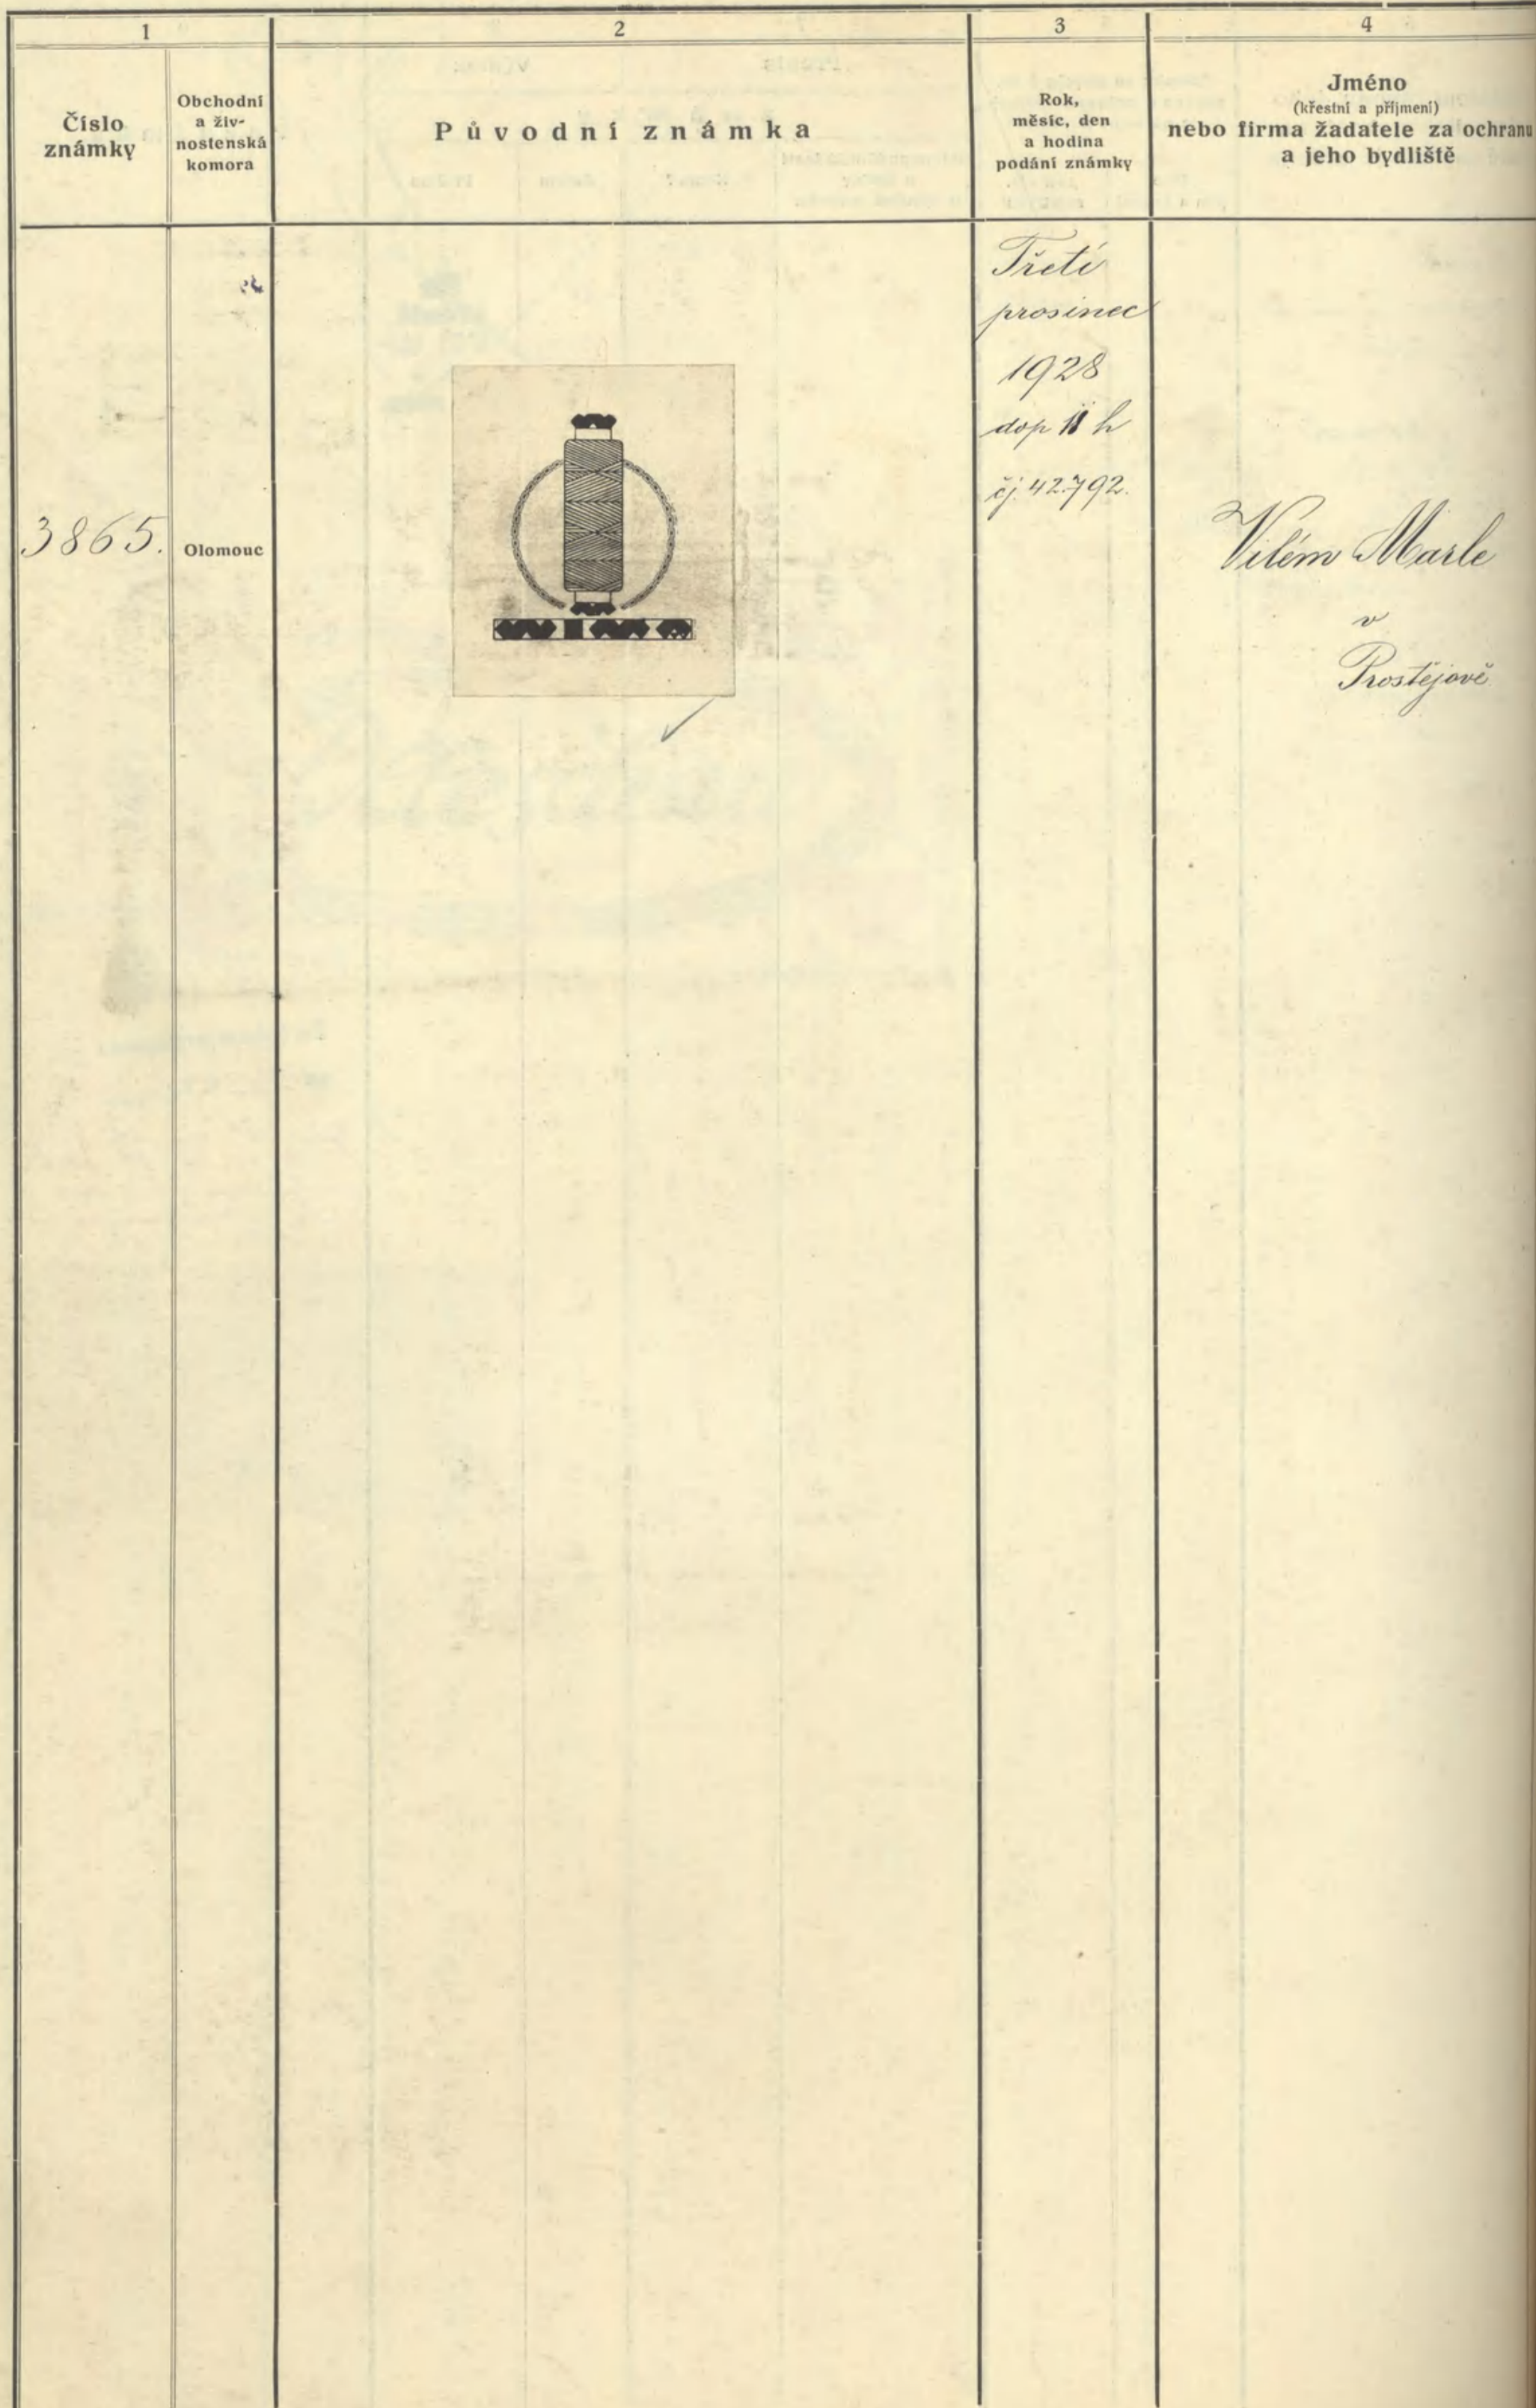 1
2
3
4
Číslo
známky
Obchodní
a živ-
nostenská
komora
Původní známka
Rok,
měsíc, den
a hodina
podání známky
Jméno
(křestní a příjmení)
nebo firma žadatele za ochranu
a jeho bydliště
Třetí
prosinec
1928
dop 11 h
čj. 42.792.
3865.
Olomouc
Vilém Marle
v
Prostějově